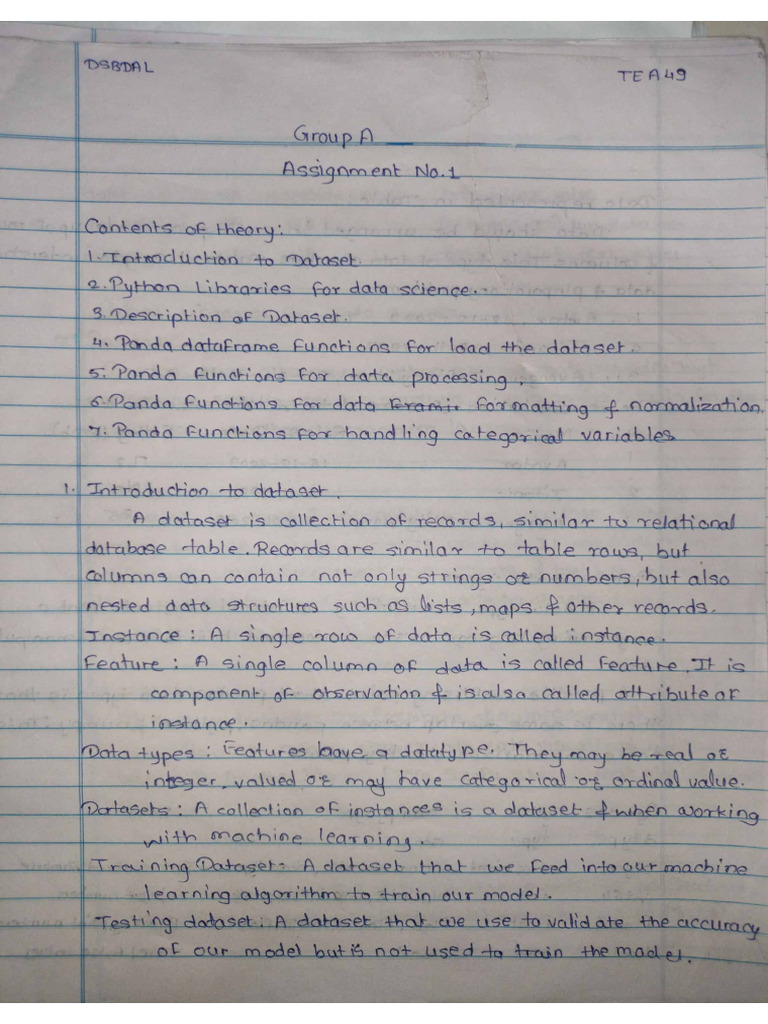 DSBDAL
TEA49
Group A
Assignment No.1
Contents of theory:
1. Introduction to Dataset.
2. Python Libraries for data science.
3. Description of Dataset.
4. Panda dataframe functions for load the dataset.
5. Panda functions for data processing.
6. Panda functions for data formatting & normalization.
7. Panda functions for handling categorical variables
1. Introduction to dataset.
A dataset is collection of records, similar to relational
database table. Records are similar to table rows, but
columns can contain not only strings or numbers, but also
nested data structures such as lists, maps & other records.
Instance : A single row of data is called instance.
Feature : A single column of data is called feature. It is
component of observation & is also called attribute of
instance.
Data types : Features have a datatype. They may be real or
integer, valued or may have categorical or ordinal value.
Datasets : A collection of instances is a dataset & when working
with machine learning.
Training Dataset: A dataset that we feed into our machine
learning algorithm to train our model.
Testing dataset: A dataset that we use to validate the accuracy
of our model but is not used to train the model.